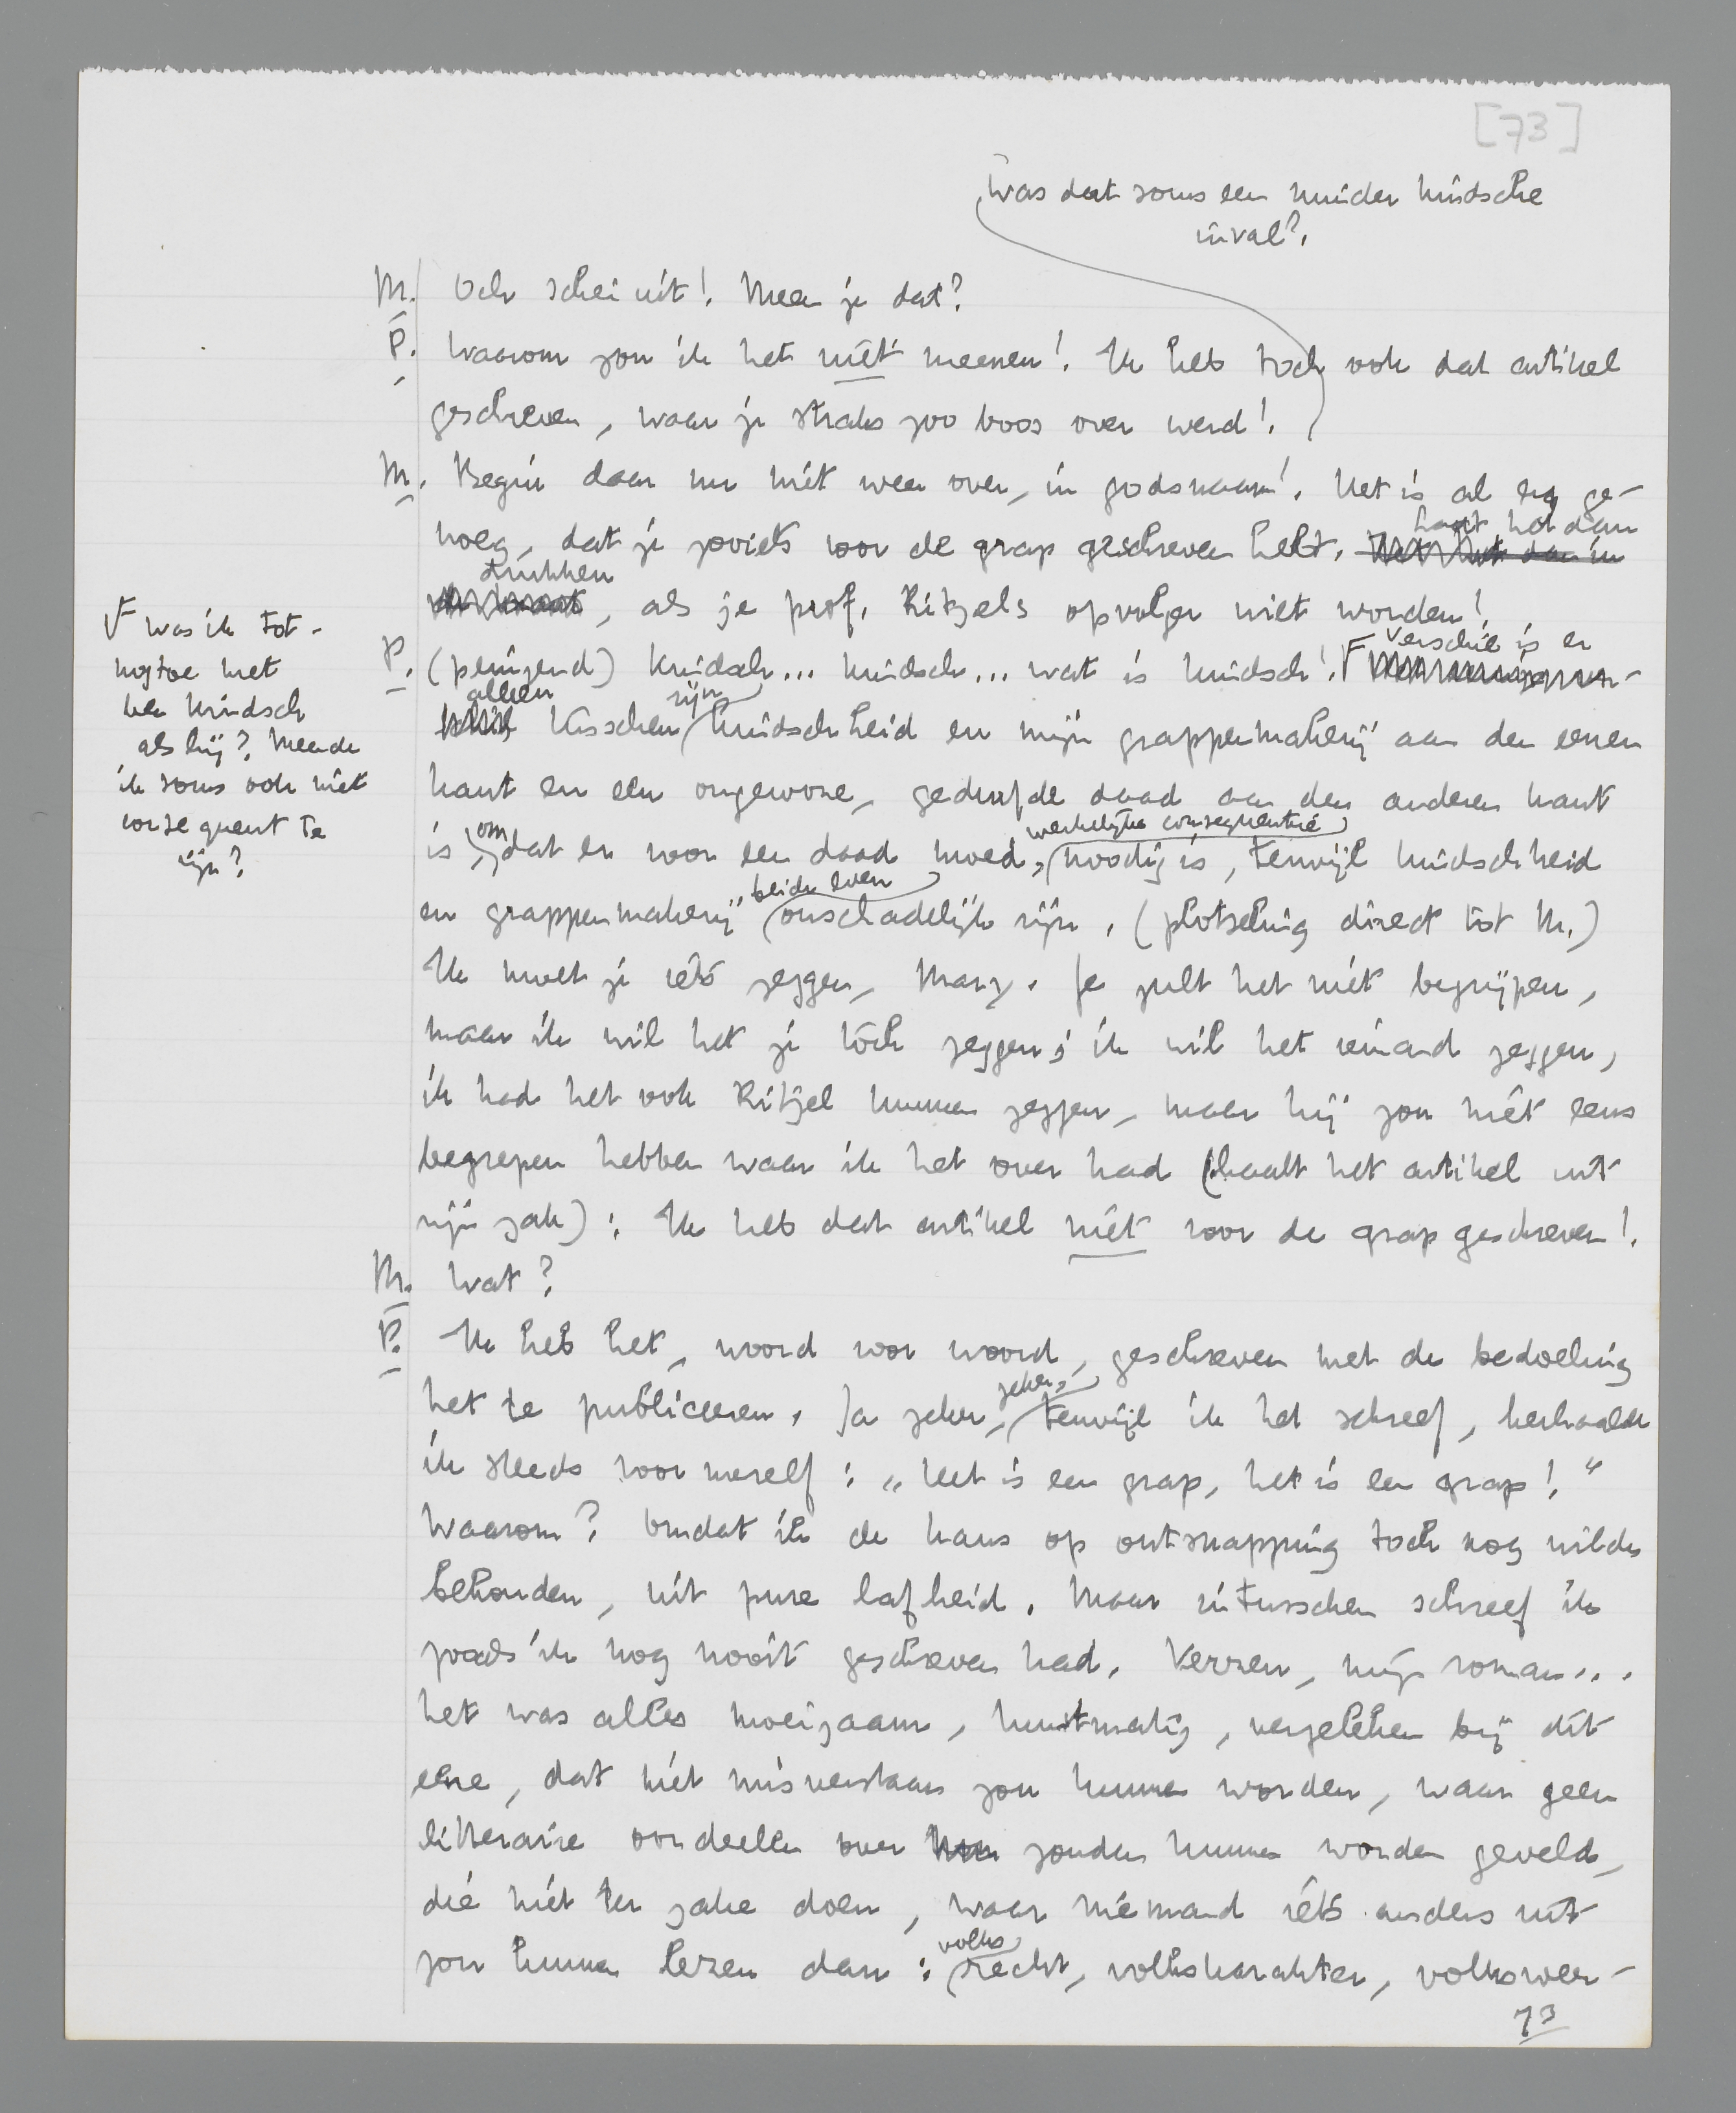 [73]
Was dat soms een minder kindsche
inval?
M. Och schei uit! Meen je dat?
P. Waarom zou ik het niet meenen! Ik heb toch ook dat artikel
geschreven, waar je straks zoo boos over werd!
M. Begin daar nu niet weer over, in godsnaam! Het is al erg ge-
noeg, dat je zooiets voor de grap geschreven hebt.
haast het dan
drukken
, als je prof. Ritzels opvolger wilt worden!
P. (peinzend) Kindsch... kindsch... wat is kindsch! F Verschil is er
F was ik tot-
nogtoe niet
ben kindsch
als hij? Meende
ik soms ook niet
consequent te
zijn?
alleen tusschen zijn kindschheid en mijn grappenmakerij aan den eenen
kant en een ongewone, gedurfde daad aan den anderen kant
is, omdat er voor een daad moed, werkelijke consequentie noodig is, terwijl kindschheid
en grappenmakerij beide even onschadelijk zijn. (plotseling direct tot M.)
Ik moet je iets zeggen, Mary. Je zult het niet begrijpen,
maar ik wil het je tóch zeggen; ik wil het iemand zeggen,
ik had het ook Ritzel kunnen zeggen, maar hij zou niet eens
begrepen hebben waar ik het over had (haalt het artikel uit
zijn zak): Ik heb dat artikel niet voor de grap geschreven!
M. Wat?
P. Ik heb het, woord voor woord, geschreven met de bedoeling
het te publiceeren. Ja zeker, zeker, terwijl ik het schreef, herhaalde
ik steeds voor mezelf: „Het is een grap, het is een grap!"
Waarom? Omdat ik de kans op ontsnapping toch nog wilde
behouden, uit pure lafheid. Maar intusschen schreef ik
zooals ik nog nooit geschreven had. Verzen, mijn roman...
het was alles moeizaam, kunstmatig, vergeleken bij dit
eene, dat niet misverstaan zou kunnen worden, waar geen
litteraire oordeelen over zouden kunnen worden geveld,
die niet ter zake doen, waar niemand iets anders uit
zou kunnen lezen dan: volksrecht, volkskarakter, volksweer-
73